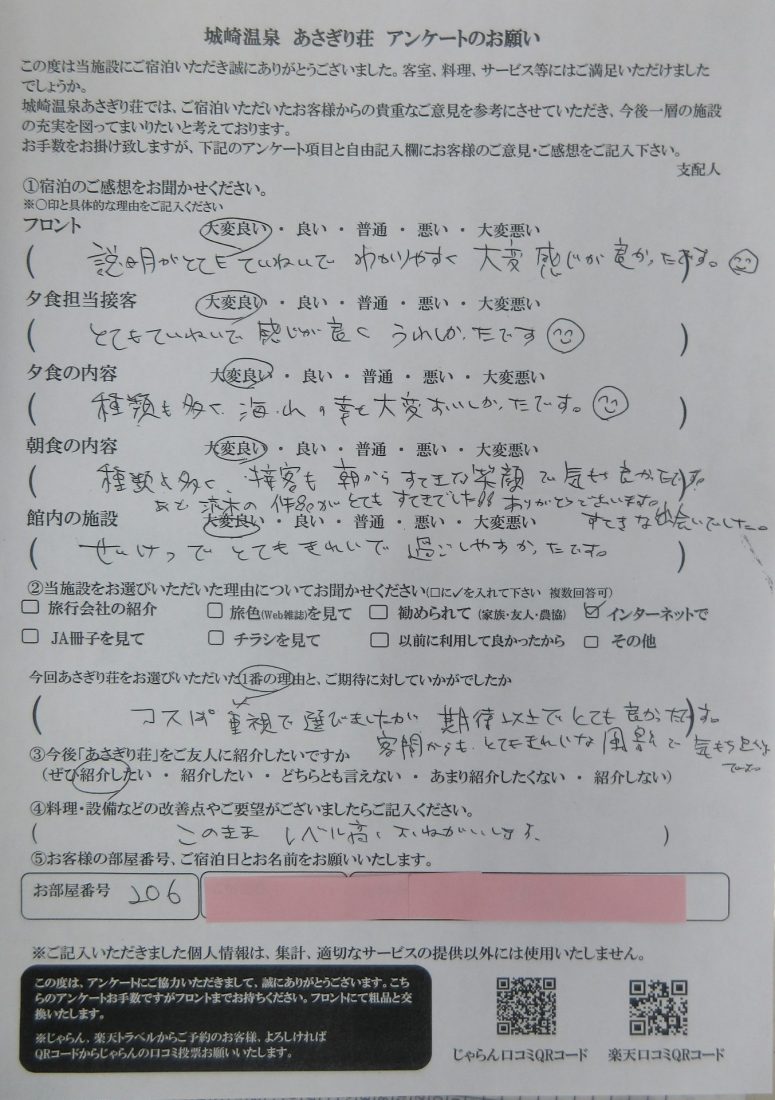 城崎温泉 あさぎり荘 アンケートのお願い
この度は当施設にご宿泊いただき誠にありがとうございました。客室、料理、サービス等にはご満足いただけました
でしょうか。
城崎温泉あさぎり荘では、ご宿泊いただいたお客様からの貴重なご意見を参考にさせていただき、今後一層の施設
の充実を図ってまいりたいと考えております。
お手数をお掛け致しますが、下記のアンケート項目と自由記入欄にお客様のご意見・ご感想をご記入下さい。
支配人
①宿泊のご感想をお聞かせください。
※〇印と具体的な理由をご記入ください
フロント 大変良い ・ 良い ・ 普通 ・ 悪い ・ 大変悪い
( 説明がとてもていねいで わかりやすく 大変 感じが 良かったです。 )
夕食担当接客 大変良い ・ 良い ・ 普通 ・ 悪い ・ 大変悪い
( とてもていねいで 感じが 良く うれしかったです )
夕食の内容 大変良い ・ 良い ・ 普通 ・ 悪い ・ 大変悪い
( 種類も多く、海・山の幸と大変おいしかったです。 )
朝食の内容 大変良い ・ 良い ・ 普通 ・ 悪い ・ 大変悪い
( 種類も多く、接客も 朝から すてきな笑顔で気持良かったです。 )
あと 流木の 作品がとても すてきでした!! ありがとうございます。
館内の施設 大変良い ・ 良い ・ 普通 ・ 悪い ・ 大変悪い すてきな出会いでした。
( せいけつで とてもきれいで 過ごしやすかったです。 )
②当施設をお選びいただいた理由についてお聞かせください(□に✓を入れて下さい 複数回答可)
□ 旅行会社の紹介 □ 旅色(Web雑誌)を見て □ 勧められて (家族・友人・農協) ☑ インターネットで
□ JA冊子を見て □ チラシを見て □ 以前に利用して良かったから □ その他
今回あさぎり荘をお選びいただいた1番の理由と、ご期待に対していかがでしたか
( コスパ重視で選びましたが 期待以上でとても良かったです。 )
客間からも、とてもきれいな 風景で 気もち良かった
③今後「あさぎり荘」をご友人に紹介したいですか
(ぜひ紹介したい ・ 紹介したい ・ どちらとも言えない ・ あまり紹介したくない ・ 紹介しない)
④料理・設備などの改善点やご要望がございましたらご記入ください。
( このまま レベル高く おねがいします。 )
⑤お客様の部屋番号、ご宿泊日とお名前をお願いいたします。
お部屋番号 206
※ご記入いただきました個人情報は、集計、適切なサービスの提供以外には使用いたしません。
この度は、アンケートにご協力いただきまして、誠にありがとうございます。こち
らのアンケートお手数ですがフロントまでお持ちください。フロントにて粗品と交
換いたします。
※じゃらん、楽天トラベルからご予約のお客様、よろしければ
QRコードからじゃらんの口コミ投票お願いいたします。
じゃらん口コミQRコード 楽天口コミQRコード